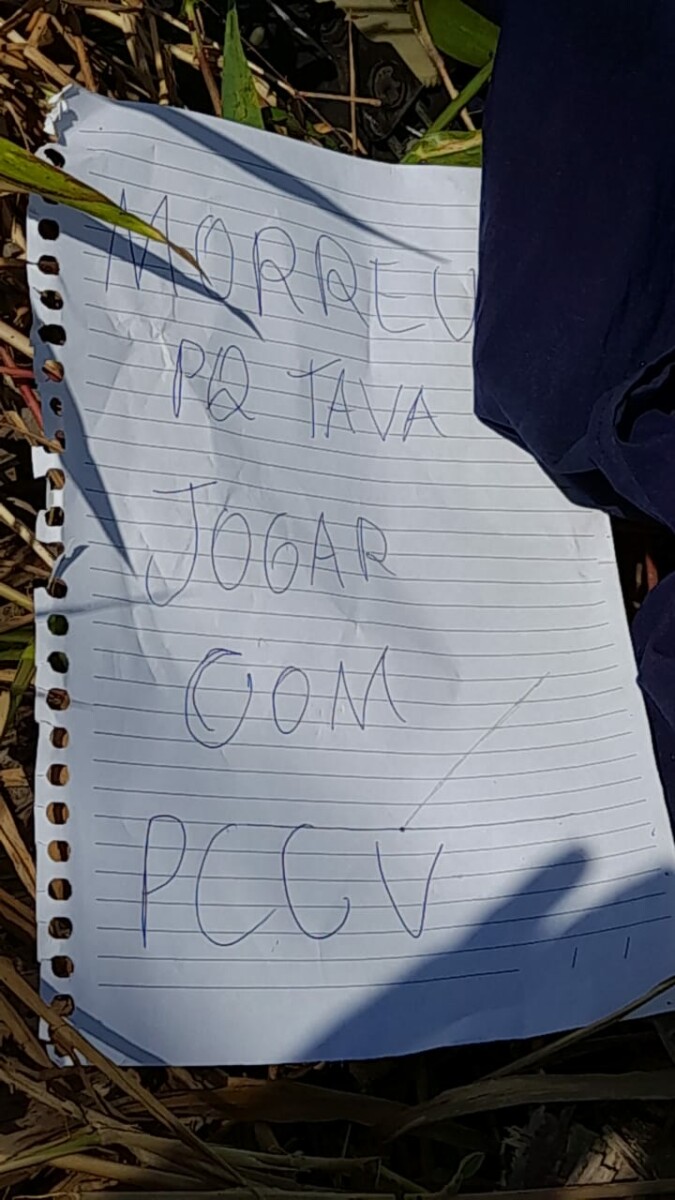 MORREU
PQ TAVA
JOGAR
COM
PCCV